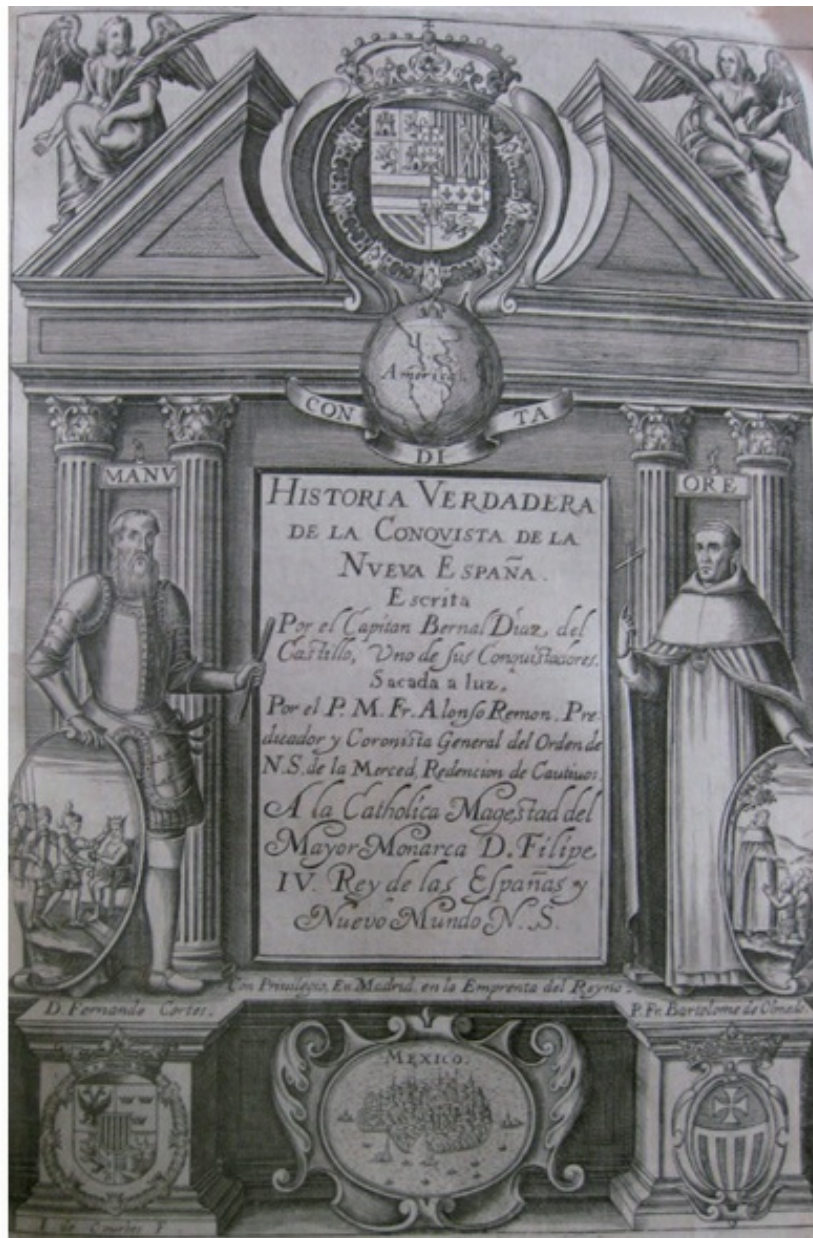 America
CON DI TA
MANV
ORE
HISTORIA VERDADERA
DE LA CONQVISTA DE LA
NVEVA ESPAÑA.
Escrita
Por el Capitan Bernal Diaz, del
Castillo, Vno de sus Conquistadores.
Sacada a luz,
Por el P. M. Fr. Alonso Remon, Pre-
dicador y Coronista General del Orden de
N. S. de la Merced, Redencion de Cautiuos.
A la Catholica Magestad del
Mayor Monarca D. Filipe
IV. Rey de las Españas y
Nuevo Mundo N. S.
Con Priuilegio, En Madrid, en la Emprenta del Reyno.
D. Fernando Cortes.
P. Fr. Bartolome de Olmedo
MEXICO.
I. de Courbes F